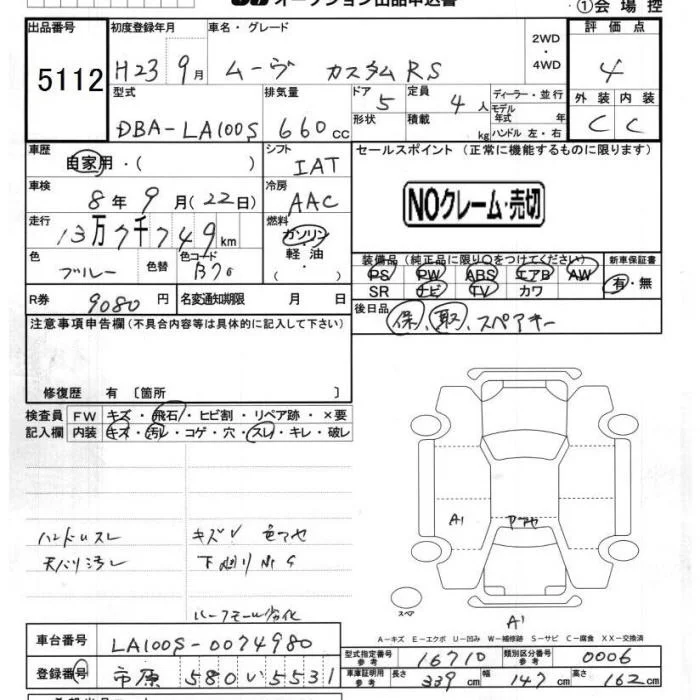 オークション出品申込書
①会場控
出品番号 初度登録年月 車名・グレード 2WD ・ 4WD 評価点
5112 H23 9月 ムーヴ カスタムRS 4
型式 排気量 ドア 5 定員 4人 ディーラー・並行 外装 内装
DBA-LA100S 660cc 形状 積載 kg モデル年式 年 ハンドル 左・右 C C
車歴 自家用・( ) シフト IAT セールスポイント (正常に機能するものに限ります)
車検 8年9月(22日) 冷房 AAC NOクレーム・売切
走行 13万7千749km 燃料 ガソリン 軽油・( )
色 ブルー 色替 色コード B70
装備品(純正品に限り○をつけてください) 新車保証書
PS PW ABS エアB AW 有・無
SR ナビ TV カワ
R券 9080円 名変通知期限 月 日 後日品 保、取、スペアキー
注意事項申告欄(不具合内容等は具体的に記入して下さい)
修復歴 有〔箇所 〕
検査員 FW キズ・飛石・ヒビ割・リペア跡・×要
記入欄 内装 キズ・汚レ・コゲ・穴・スレ・キレ・破レ
ハンドルスレ キズV 色アセ
天バリ汚レ 下廻りサビ
A1
スペア A1
A-キズ E-エクボ U-凹み W-補修跡 S-サビ C-腐食 XX-交換済
車台番号 LA100S-0074980
型式指定番号 参考 16710 類別区分番号 参考 0006
登録番号 市原 580 い 5531
車庫証明用 参考 長さ 339cm 幅 147cm 高さ 162cm